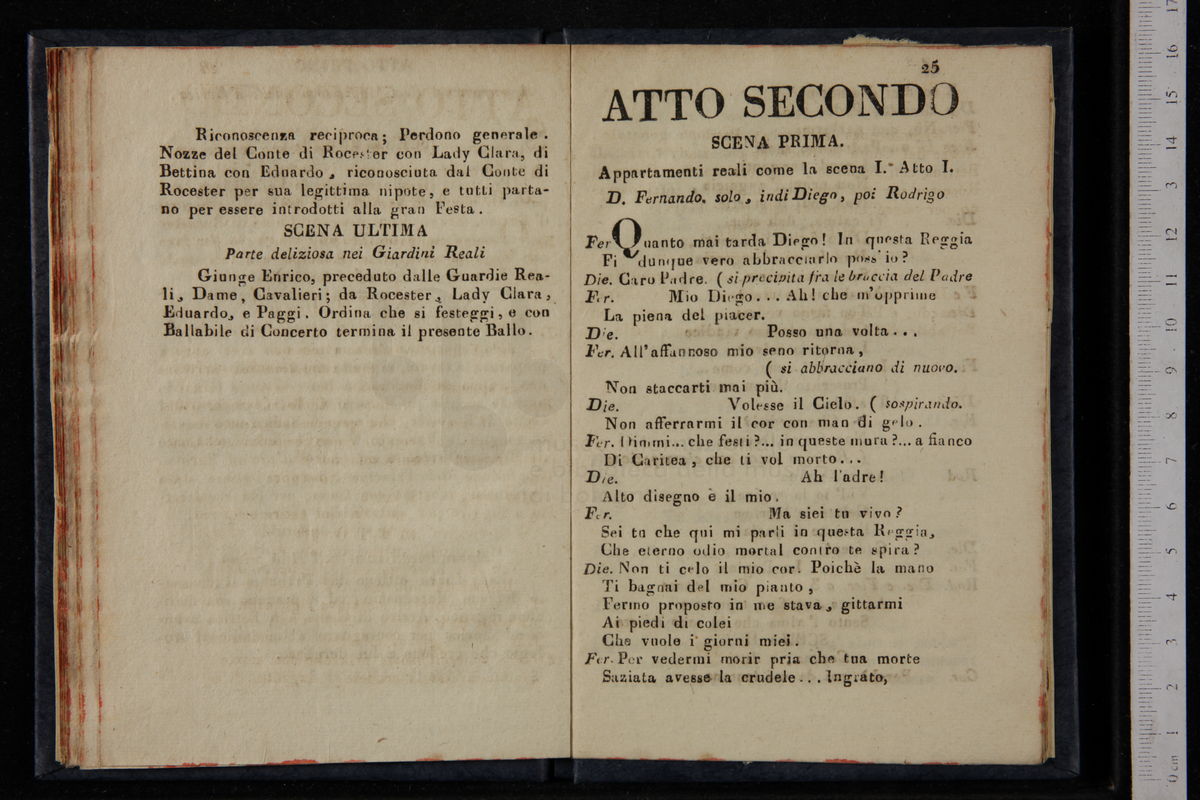 Riconoscenza reciproca; Perdono generale.
Nozze del Conte di Rocester con Lady Clara, di
Bettina con Eduardo, riconosciuta dal Conte di
Rocester per sua legittima nipote, e tutti parta-
no per essere introdotti alla gran Festa.
SCENA ULTIMA
Parte deliziosa nei Giardini Reali
Giunge Enrico, preceduto dalle Guardie Rea-
li, Dame, Cavalieri; da Rocester, Lady Clara,
Eduardo, e Paggi. Ordina che si festeggi, e con
Ballabile di Concerto termina il presente Ballo.
25
ATTO SECONDO
SCENA PRIMA.
Appartamenti reali come la scena I.ª Atto I.
D. Fernando, solo, indi Diego, poi Rodrigo
Fer Quanto mai tarda Diego! In questa Reggia
Fi dunque vero abbracciarlo poss'io?
Die. Caro Padre. ( si precipita fra le braccia del Padre
Fer. Mio Diego... Ah! che m'opprime
La piena del piacer.
Die. Posso una volta...
Fer. All'affannoso mio seno ritorna,
( si abbracciano di nuovo.
Non staccarti mai più.
Die. Volesse il Cielo. ( sospirando.
Non afferrarmi il cor con man di gelo.
Fer. Dimmi... che festi?... in queste mura?... a fianco
Di Caritea, che ti vol morto...
Die. Ah Padre!
Alto disegno è il mio.
Fer. Ma siei tu vivo?
Sei tu che qui mi parli in questa Reggia,
Che eterno odio mortal contro te spira?
Die. Non ti celo il mio cor. Poichè la mano
Ti bagnai del mio pianto,
Fermo proposto in me stava, gittarmi
Ai piedi di colei
Che vuole i giorni miei.
Fer. Per vedermi morir pria che tua morte
Saziata avesse la crudele... Ingrato,
0 cm 1 2 3 4 5 6 7 8 9 10 11 12 13 14 15 16 17